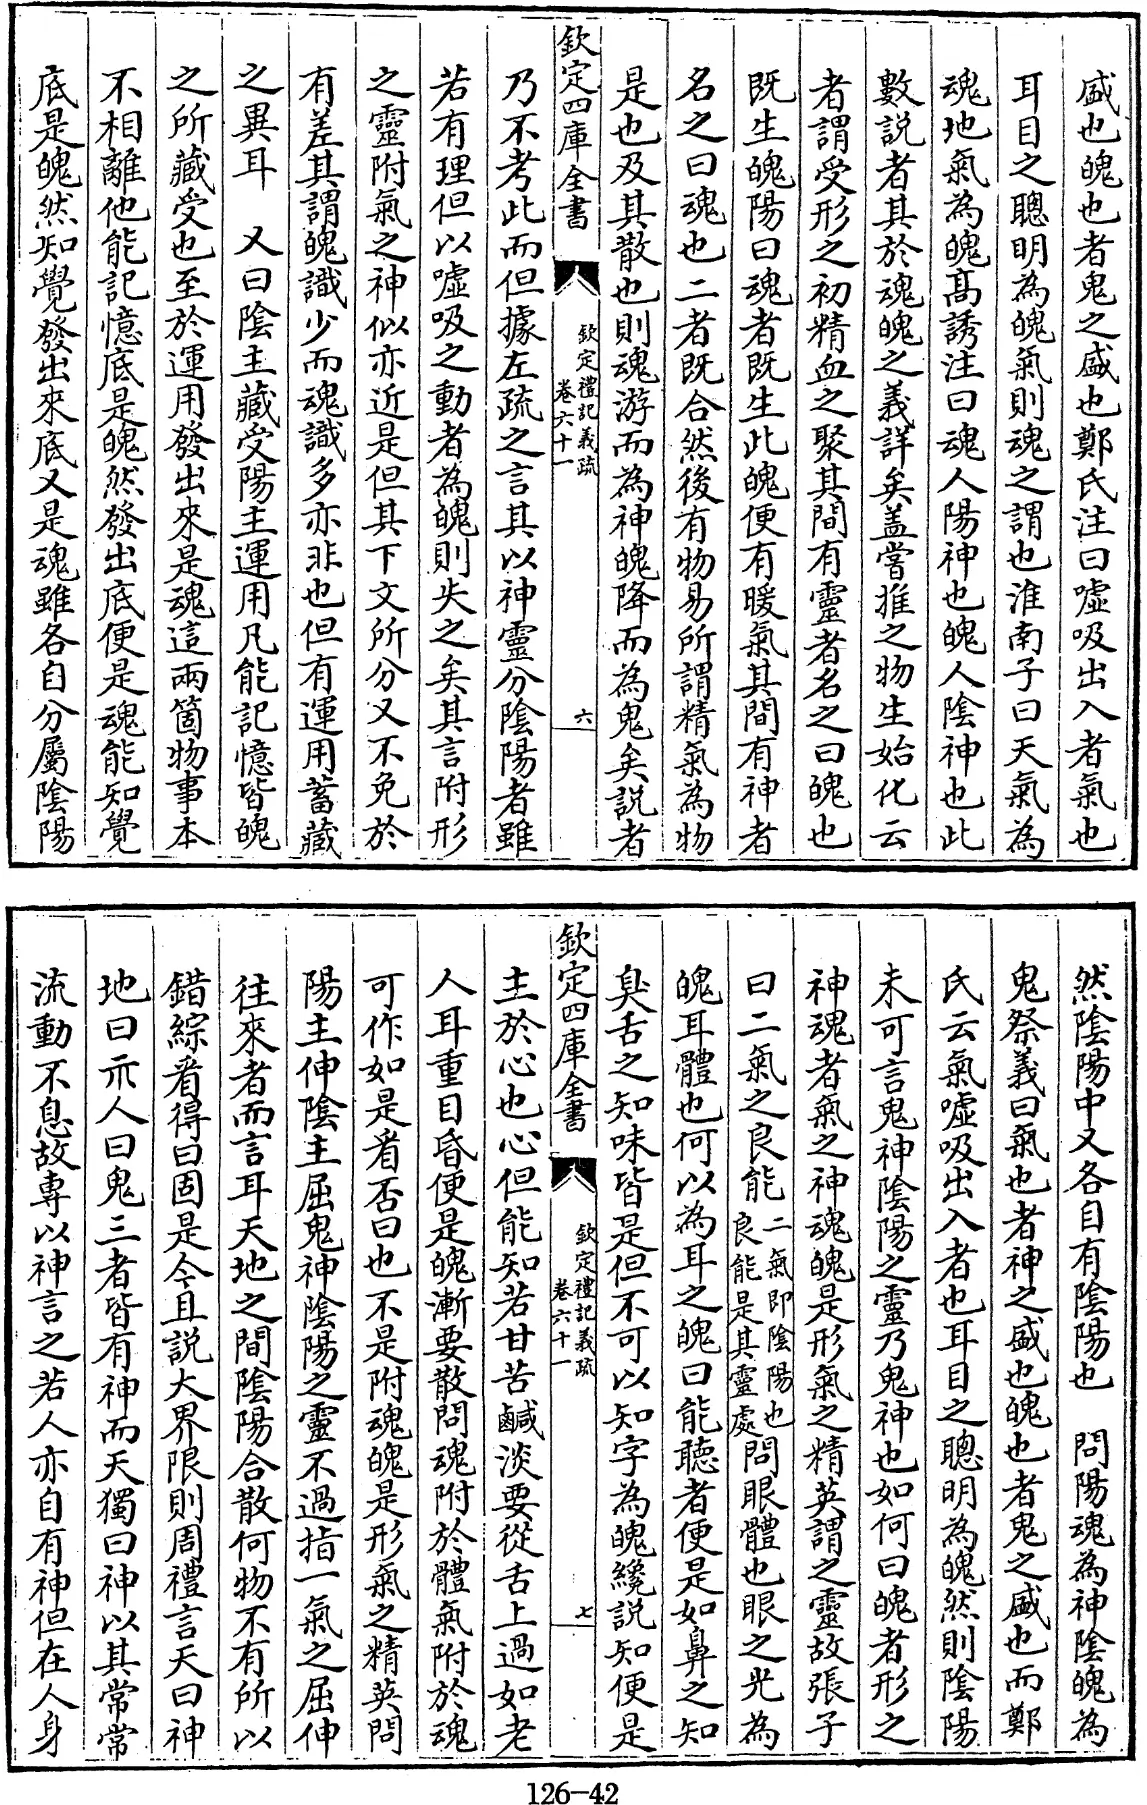 盛也魄也者鬼之盛也鄭氏注曰噓吸出入者氣也
耳目之聰明為魄氣則魂之謂也淮南子曰天氣為
魂地氣為魄髙誘注曰魂人陽神也魄人陰神也此
數説者其於魂魄之義詳矣盖嘗推之物生始化云
者謂受形之初精血之聚其間有靈者名之曰魄也
既生魄陽曰魂者既生此魄便有暖氣其間有神者
名之曰魂也二者既合然後有物易所謂精氣為物
是也及其散也則魂游而為神魄降而為鬼矣説者
欽定四庫全書
欽定禮記義疏
卷六十一
六
乃不考此而但據左疏之言其以神靈分陰陽者雖
若有理但以噓吸之動者為魄則失之矣其言附形
之靈附氣之神似亦近是但其下文所分又不免於
有差其謂魄識少而魂識多亦非也但有運用蓄藏
之異耳 又曰陰主藏受陽主運用凡能記憶皆魄
之所藏受也至於運用發出來是魂這兩箇物事本
不相離他能記憶底是魄然發出底便是魂能知覺
底是魄然知覺發出來底又是魂雖各自分屬陰陽
然陰陽中又各自有陰陽也 問陽魂為神陰魄為
鬼祭義曰氣也者神之盛也魄也者鬼之盛也而鄭
氏云氣噓吸出入者也耳目之聰明為魄然則陰陽
未可言鬼神陰陽之靈乃鬼神也如何曰魄者形之
神魂者氣之神魂魄是形氣之精英謂之靈故張子
曰二氣之良能二氣即陰陽也良能是其靈處問眼體也眼之光為
魄耳體也何以為耳之魄曰能聽者便是如鼻之知
臭舌之知味皆是但不可以知字為魄纔説知便是
欽定四庫全書
欽定禮記義疏
卷六十一
七
主於心也心但能知若甘苦鹹淡要從舌上過如老
人耳重目昏便是魄漸要散問魂附於體氣附於魂
可作如是看否曰也不是附魂魄是形氣之精英問
陽主伸陰主屈鬼神陰陽之靈不過指一氣之屈伸
往來者而言耳天地之間陰陽合散何物不有所以
錯綜看得曰固是今且説大界限則周禮言天曰神
地曰示人曰鬼三者皆有神而天獨曰神以其常常
流動不息故專以神言之若人亦自有神但在人身
126-42